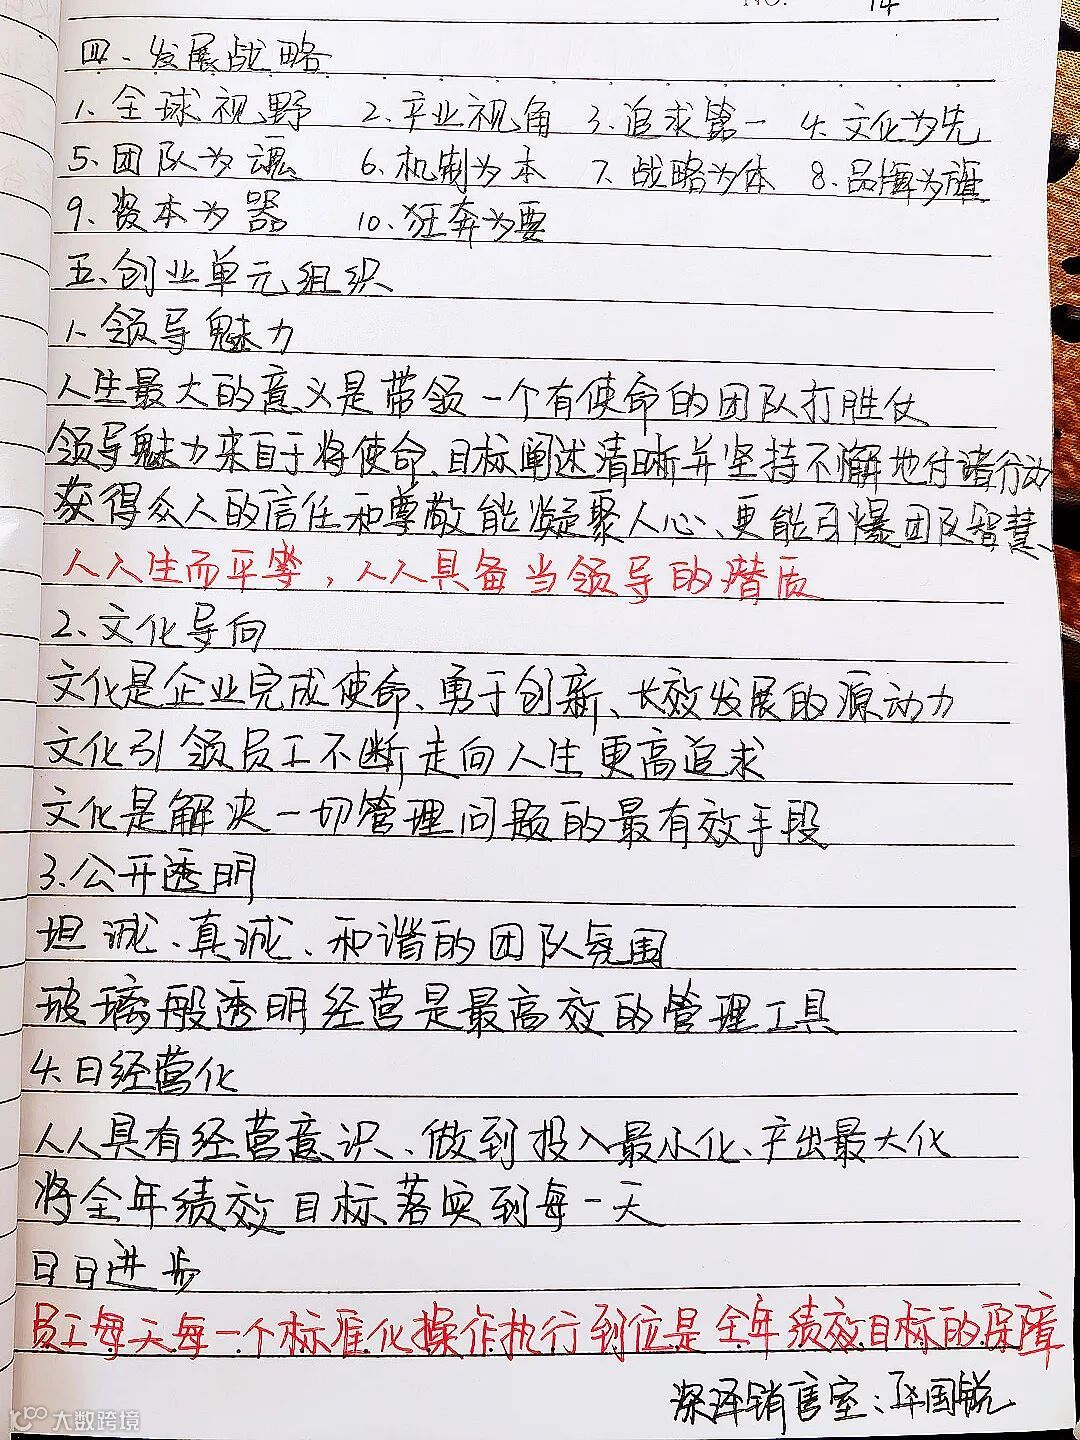 NO. 14
四、发展战略
1、全球视野 2、产业视角 3、追求第一 4、文化为先
5、团队为魂 6、机制为本 7、战略为体 8、品牌为旗
9、资本为器 10、狂奔为要
五、创业单元组织
1、领导魅力
人生最大的意义是带领一个有使命的团队打胜仗
领导魅力来自于将使命、目标阐述清晰并坚持不懈地付诸行动
获得众人的信任和尊敬能凝聚人心、更能引爆团队智慧、
人人生而平等，人人具备当领导的潜质
2、文化导向
文化是企业完成使命、勇于创新、长效发展的源动力
文化引领员工不断走向人生更高追求
文化是解决一切管理问题的最有效手段
3.公开透明
坦诚、真诚、和谐的团队氛围
玻璃般透明经营是最高效的管理工具
4、日经营化
人人具有经营意识、做到投入最小化、产出最大化
将全年绩效目标落实到每一天
日日进步
员工每天每一个标准化操作执行到位是全年绩效目标的保障
深泽销售室：国锐
大数跨境